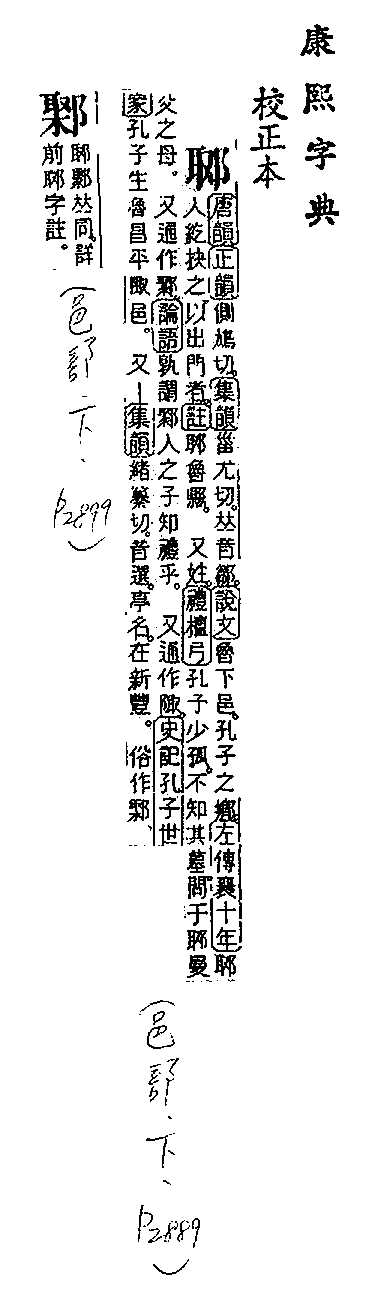 康熙字典
校正本
郰
唐韻正韻側鳩切。集韻甾尤切。𠀤音鄒。說文魯下邑。孔子之鄉。左傳襄十年郰
人紇抉之以出門者。註郰魯縣。 又姓。禮檀弓孔子少孤。不知其墓。問于郰曼
父之母。 又通作鄹。論語孰謂鄹人之子知禮乎。 又通作陬。史記孔子世
家孔子生魯昌平陬邑。 又集韻緒纂切。音選。亭名。在新豐。 俗作鄹、
(邑部.下.P2889)
鄹
郰鄹𠀤同。詳
前郰字註。
(邑部.下.P2899)